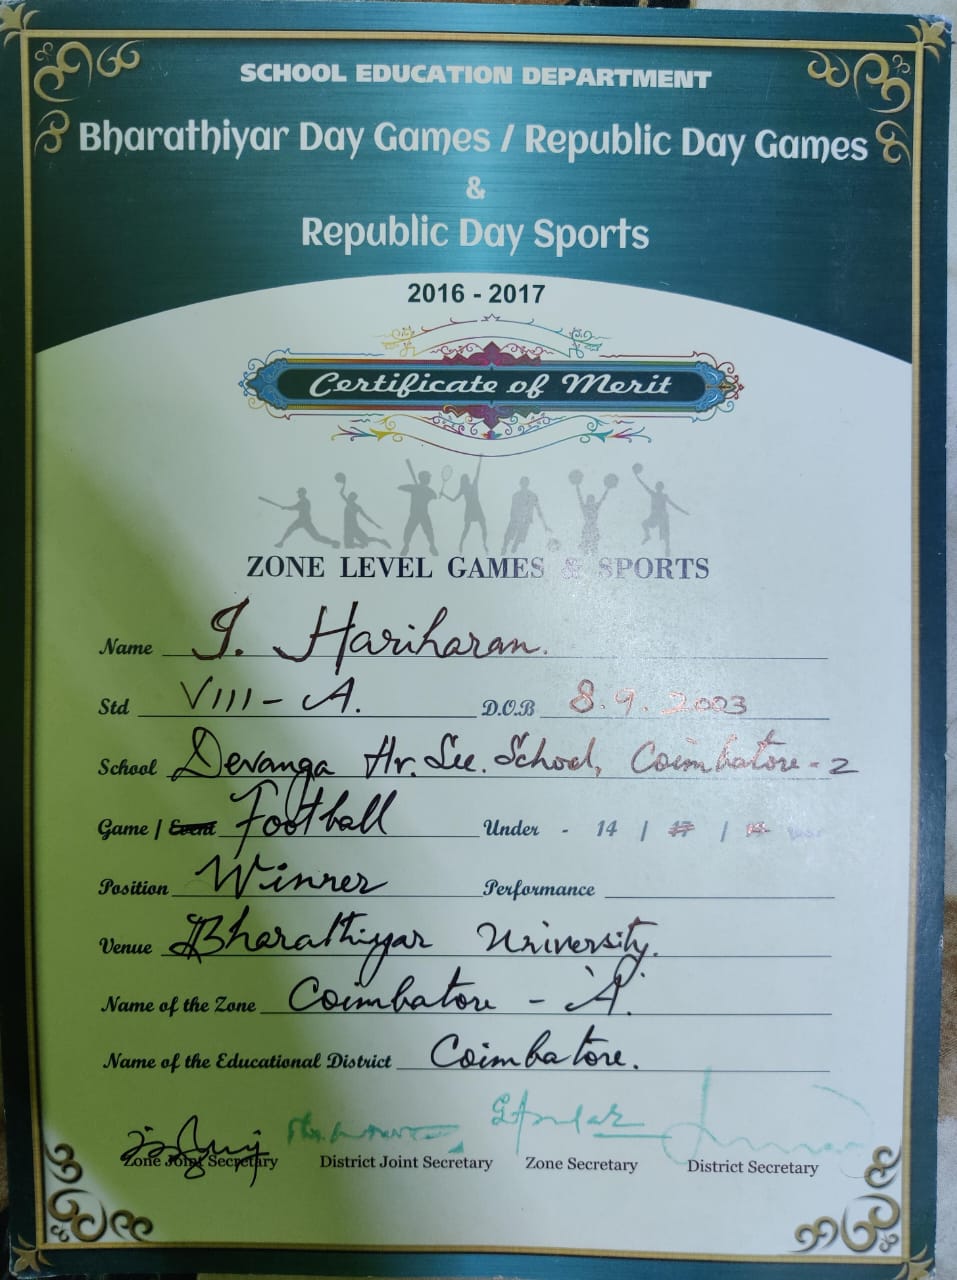 SCHOOL EDUCATION DEPARTMENT
Bharathiyar Day Games / Republic Day Games
&
Republic Day Sports
2016 - 2017
Certificate of Merit
ZONE LEVEL GAMES & SPORTS
Name J. Hariharan.
Std VIII - A. D.O.B 8.9.2003
School Devanga Hr. Sec. School, Coimbatore - 2
Game / Event Football Under - 14 / 17 / 19
Position Winner Performance
Venue Bharathiyar University.
Name of the Zone Coimbatore - 'A'.
Name of the Educational District Coimbatore.
Zone Joint Secretary District Joint Secretary Zone Secretary District Secretary